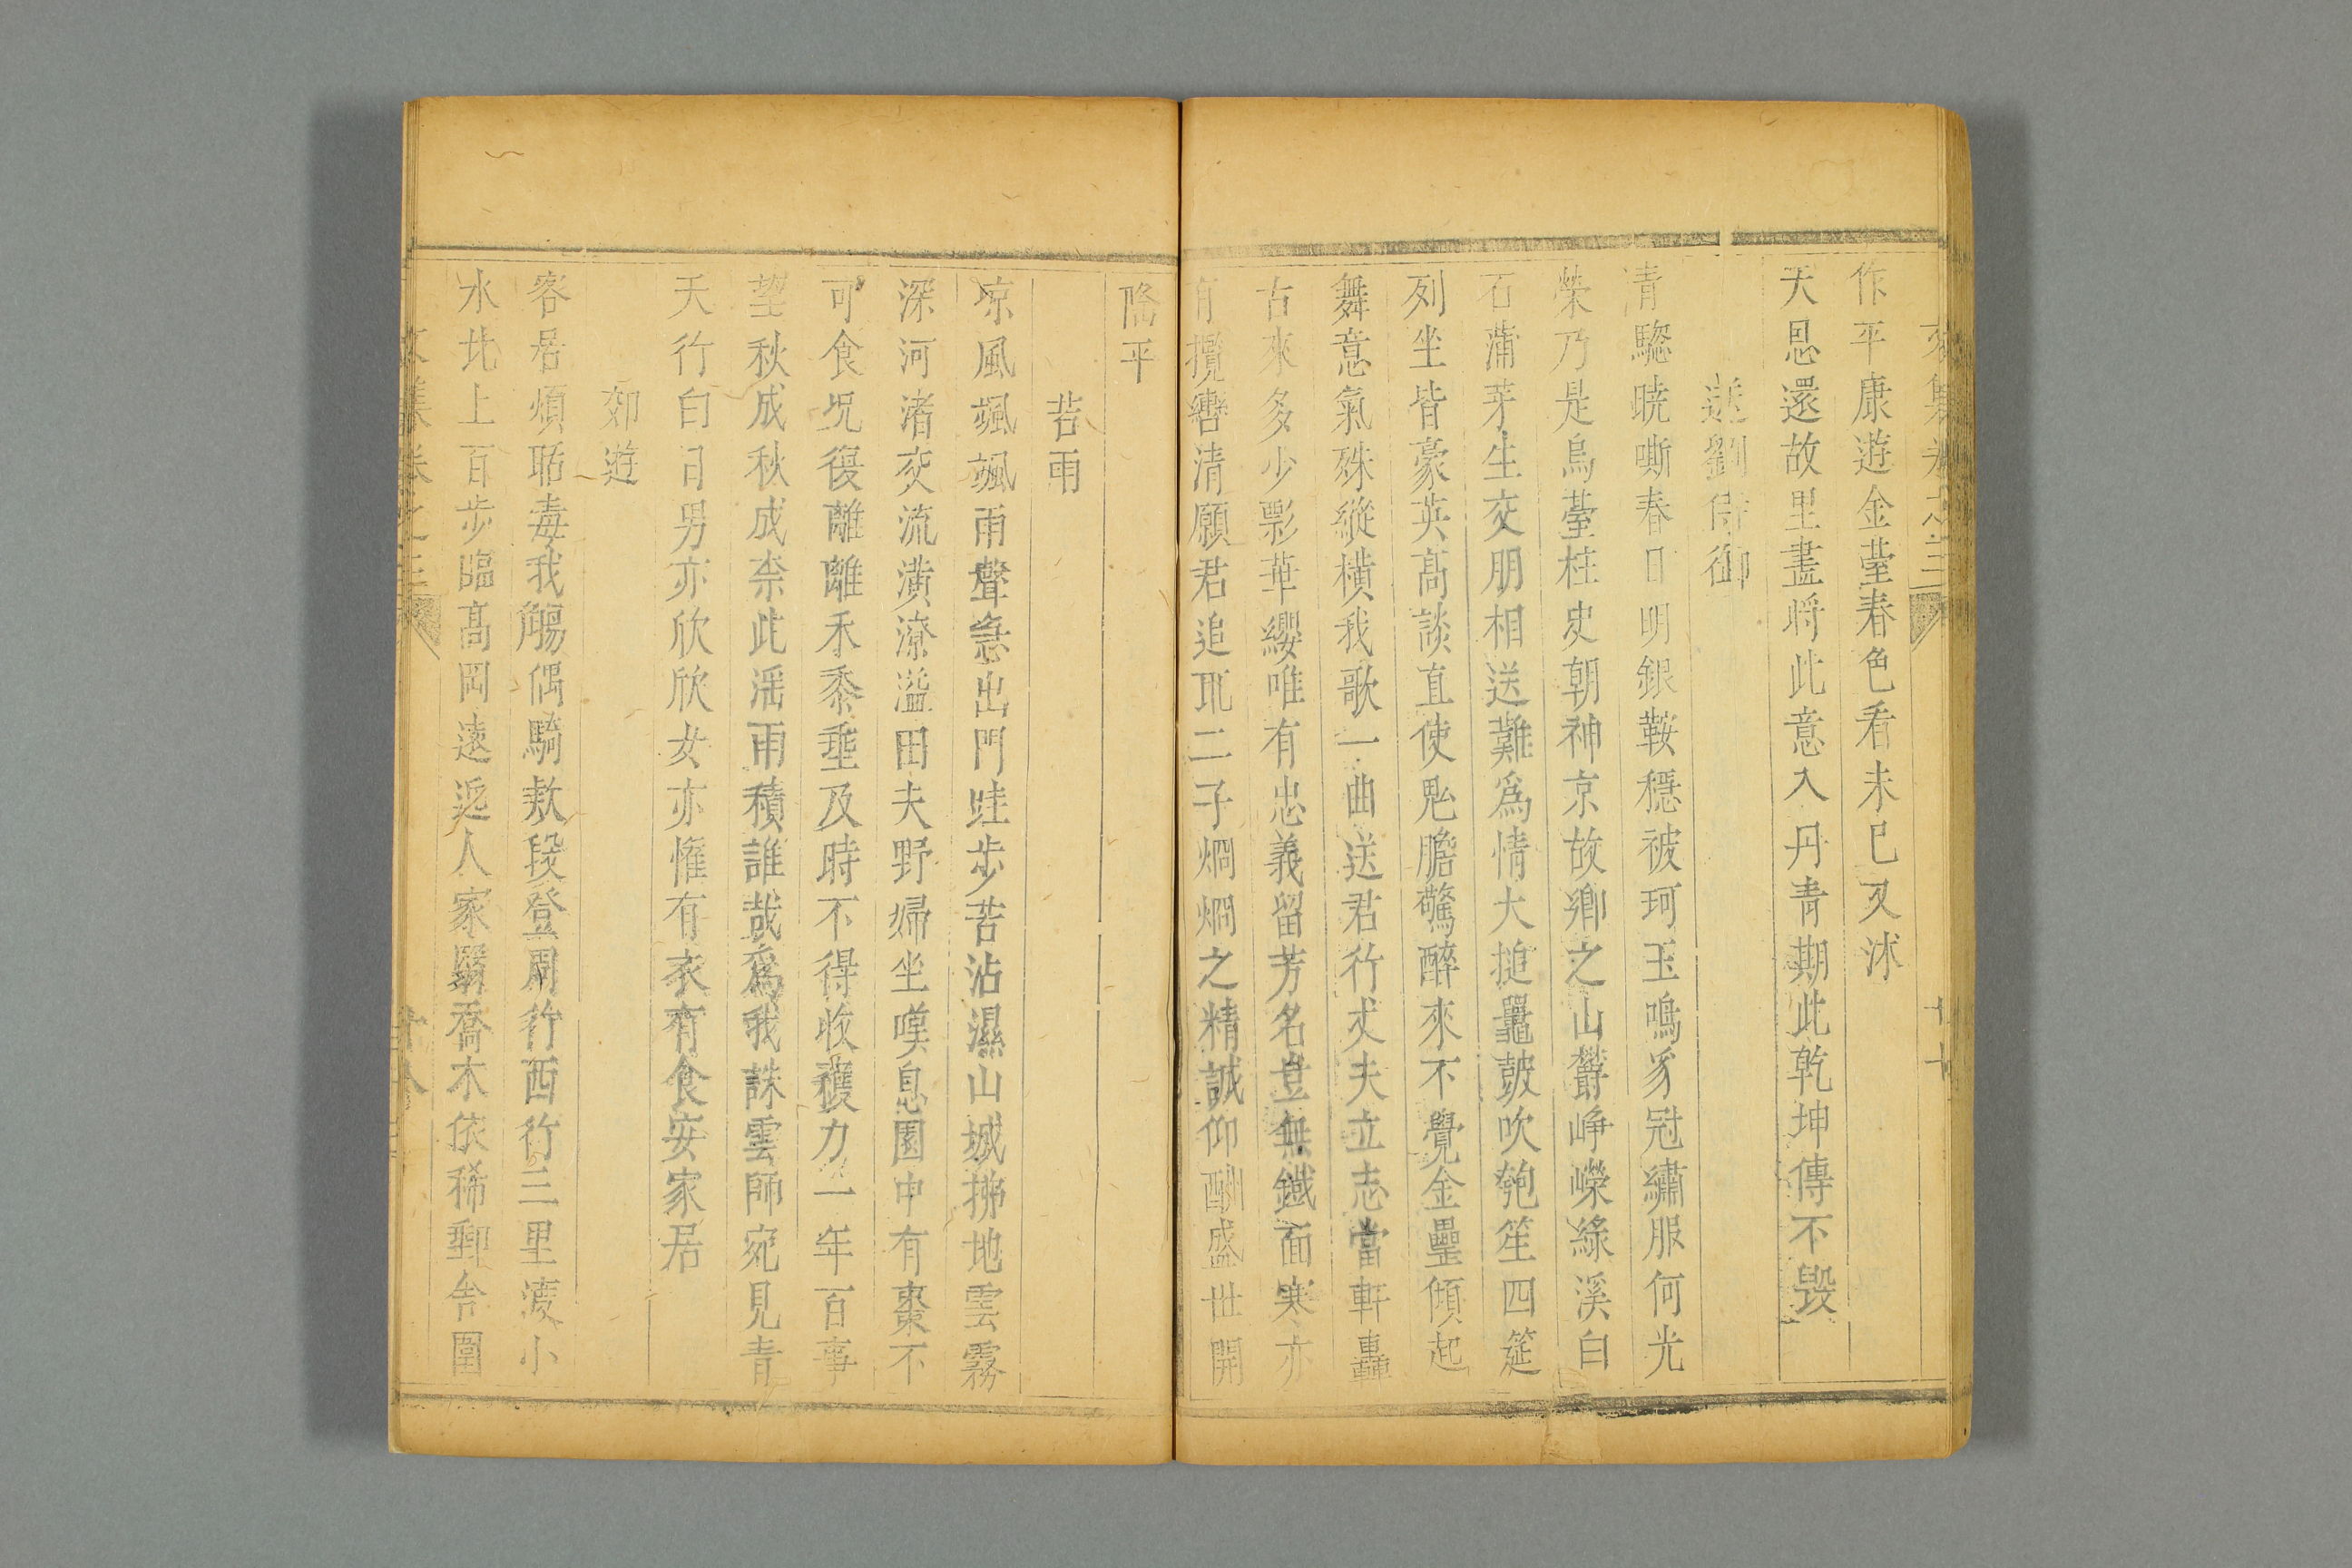 作平康遊金臺春色看未已又沭
天恩還故里盡將此意入丹青期此乾坤傳不毀
送劉侍御
青驄曉嘶春日明銀鞍穩被珂玉鳴豸冠繡服何光
榮乃是烏臺柱史朝神京故鄉之山欝崢嶸綠溪白
石蒲芽生交朋相送難為情大搥鼉皷吹匏笙四筵
列坐皆豪英高談直使鬼膽驚醉來不覺金罍傾起
舞意氣殊縱橫我歌一曲送君行丈夫立志當軒轟
古來多少影華纓唯有忠義留芳名豈無鐵面寒亦
有攬轡清願君追配二子烱烱之精誠仰酬盛世開
隆平
苦雨
凉風颯颯雨聲急出門跬步苦沾濕山城拂地雲霧
深河渚交流潢潦溢田夫野婦坐嘆息園中有棗不
可食况復離離禾黍垂及時不得收穫力一年百事
望秋成秋成柰此滛雨積誰哉為我誅雲師宛見青
天行白日男亦欣欣女亦懽有衣有食安家居
郊遊
客居煩聒毒我觴偶騎欵段登周行西行三里渡小
水北上百步臨高岡遠近人家翳喬木依稀郵舍圍
文集卷之三
十八